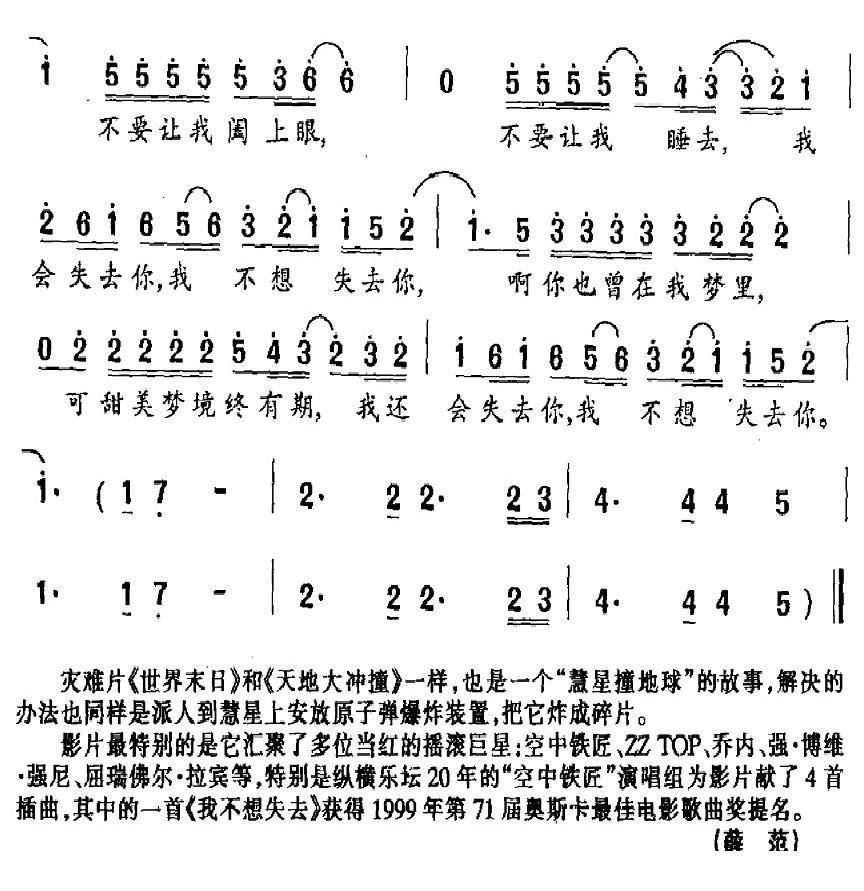 1 5 5 5 5 5 3 6 6 | 0 5 5 5 5 5 4 3 3 2 1 |
不要让我阖上眼, 不要让我 睡去, 我
2 6 1 6 5 6 3 2 1 1 5 2 | 1· 5 3 3 3 3 3 2 2 2
会失去你,我 不想 失去你, 啊你也曾在我梦里,
0 2 2 2 2 2 5 4 3 2 3 2 | 1 6 1 6 5 6 3 2 1 1 5 2
可甜美梦境终有期, 我还 会失去你,我 不想 失去你。
1· (1 7 - | 2· 2 2· 2 3 | 4· 4 4 5 |
1· 1 7 - | 2· 2 2· 2 3 | 4· 4 4 5 )‖
灾难片《世界末日》和《天地大冲撞》一样,也是一个“慧星撞地球”的故事,解决的
办法也同样是派人到慧星上安放原子弹爆炸装置,把它炸成碎片。
影片最特别的是它汇聚了多位当红的摇滚巨星:空中铁匠、ZZ TOP、乔内、强·博维
·强尼、屈瑞佛尔·拉宾等,特别是纵横乐坛20年的“空中铁匠”演唱组为影片献了4首
插曲,其中的一首《我不想失去》获得1999年第71届奥斯卡最佳电影歌曲奖提名。
(薛 范)